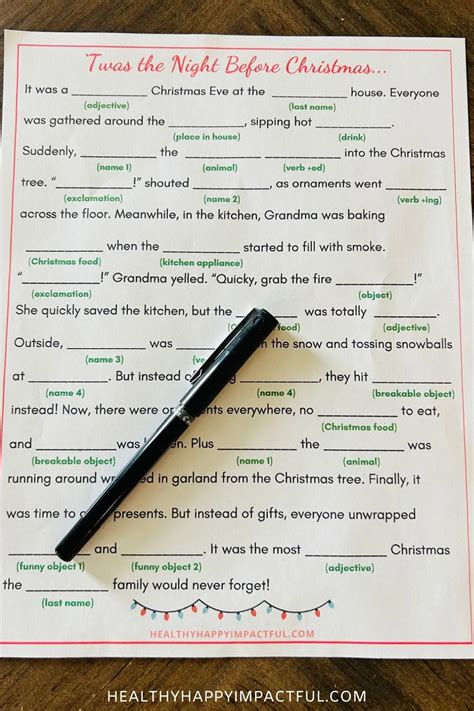 'Twas the Night Before Christmas...
It was a ____________ Christmas Eve at the ____________ house. Everyone
(adjective) (last name)
was gathered around the ____________, sipping hot ____________.
(place in house) (drink)
Suddenly, ____________ the ____________ ____________ into the Christmas
(name 1) (animal) (verb +ed)
tree. "____________!" shouted ____________, as ornaments went ____________
(exclamation) (name 2) (verb +ing)
across the floor. Meanwhile, in the kitchen, Grandma was baking
____________ when the ____________ started to fill with smoke.
(Christmas food) (kitchen appliance)
"____________!" Grandma yelled. "Quicky, grab the fire ____________!"
(exclamation) (object)
She quickly saved the kitchen, but the ____________ was totally ____________.
food) (adjective)
Outside, ____________ was ____________ the snow and tossing snowballs
(name 3) (verb
at ____________. But instead of ____________, they hit ____________
(name 4) (name 4) (breakable object)
instead! Now, there were everywhere, no ____________ to eat,
(Christmas food)
and ____________ was Plus ____________ the ____________ was
(breakable object) (name 1) (animal)
running around in garland from the Christmas tree. Finally, it
was time to presents. But instead of gifts, everyone unwrapped
____________ and ____________. It was the most ____________ Christmas
(funny object 1) (funny object 2) (adjective)
the ____________ family would never forget!
(last name)
HEALTHYHAPPYIMPACTFUL.COM
HEALTHYHAPPYIMPACTFUL.COM